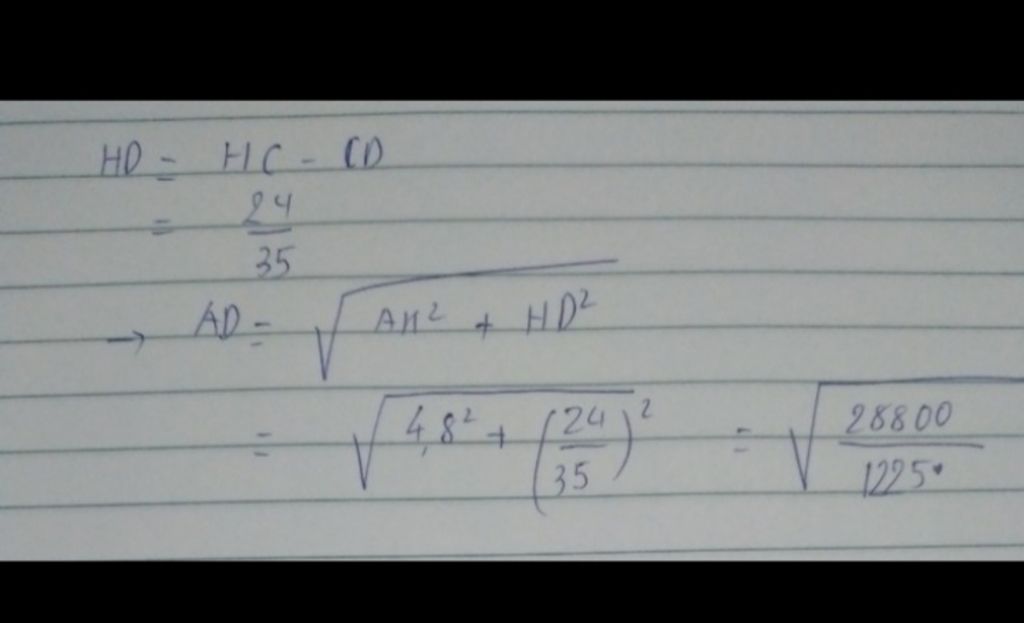 HD = HC - CD
= 24/35
→ AD = √(AH² + HD²)
= √(4,8² + (24/35)²) = √(28800/1225)